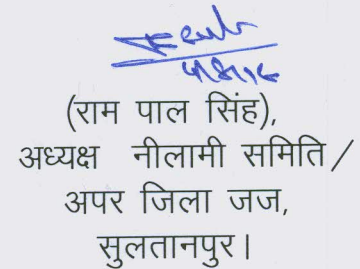 (राम पाल सिंह),
अध्यक्ष नीलामी समिति/
अपर जिला जज,
सुलतानपुर।